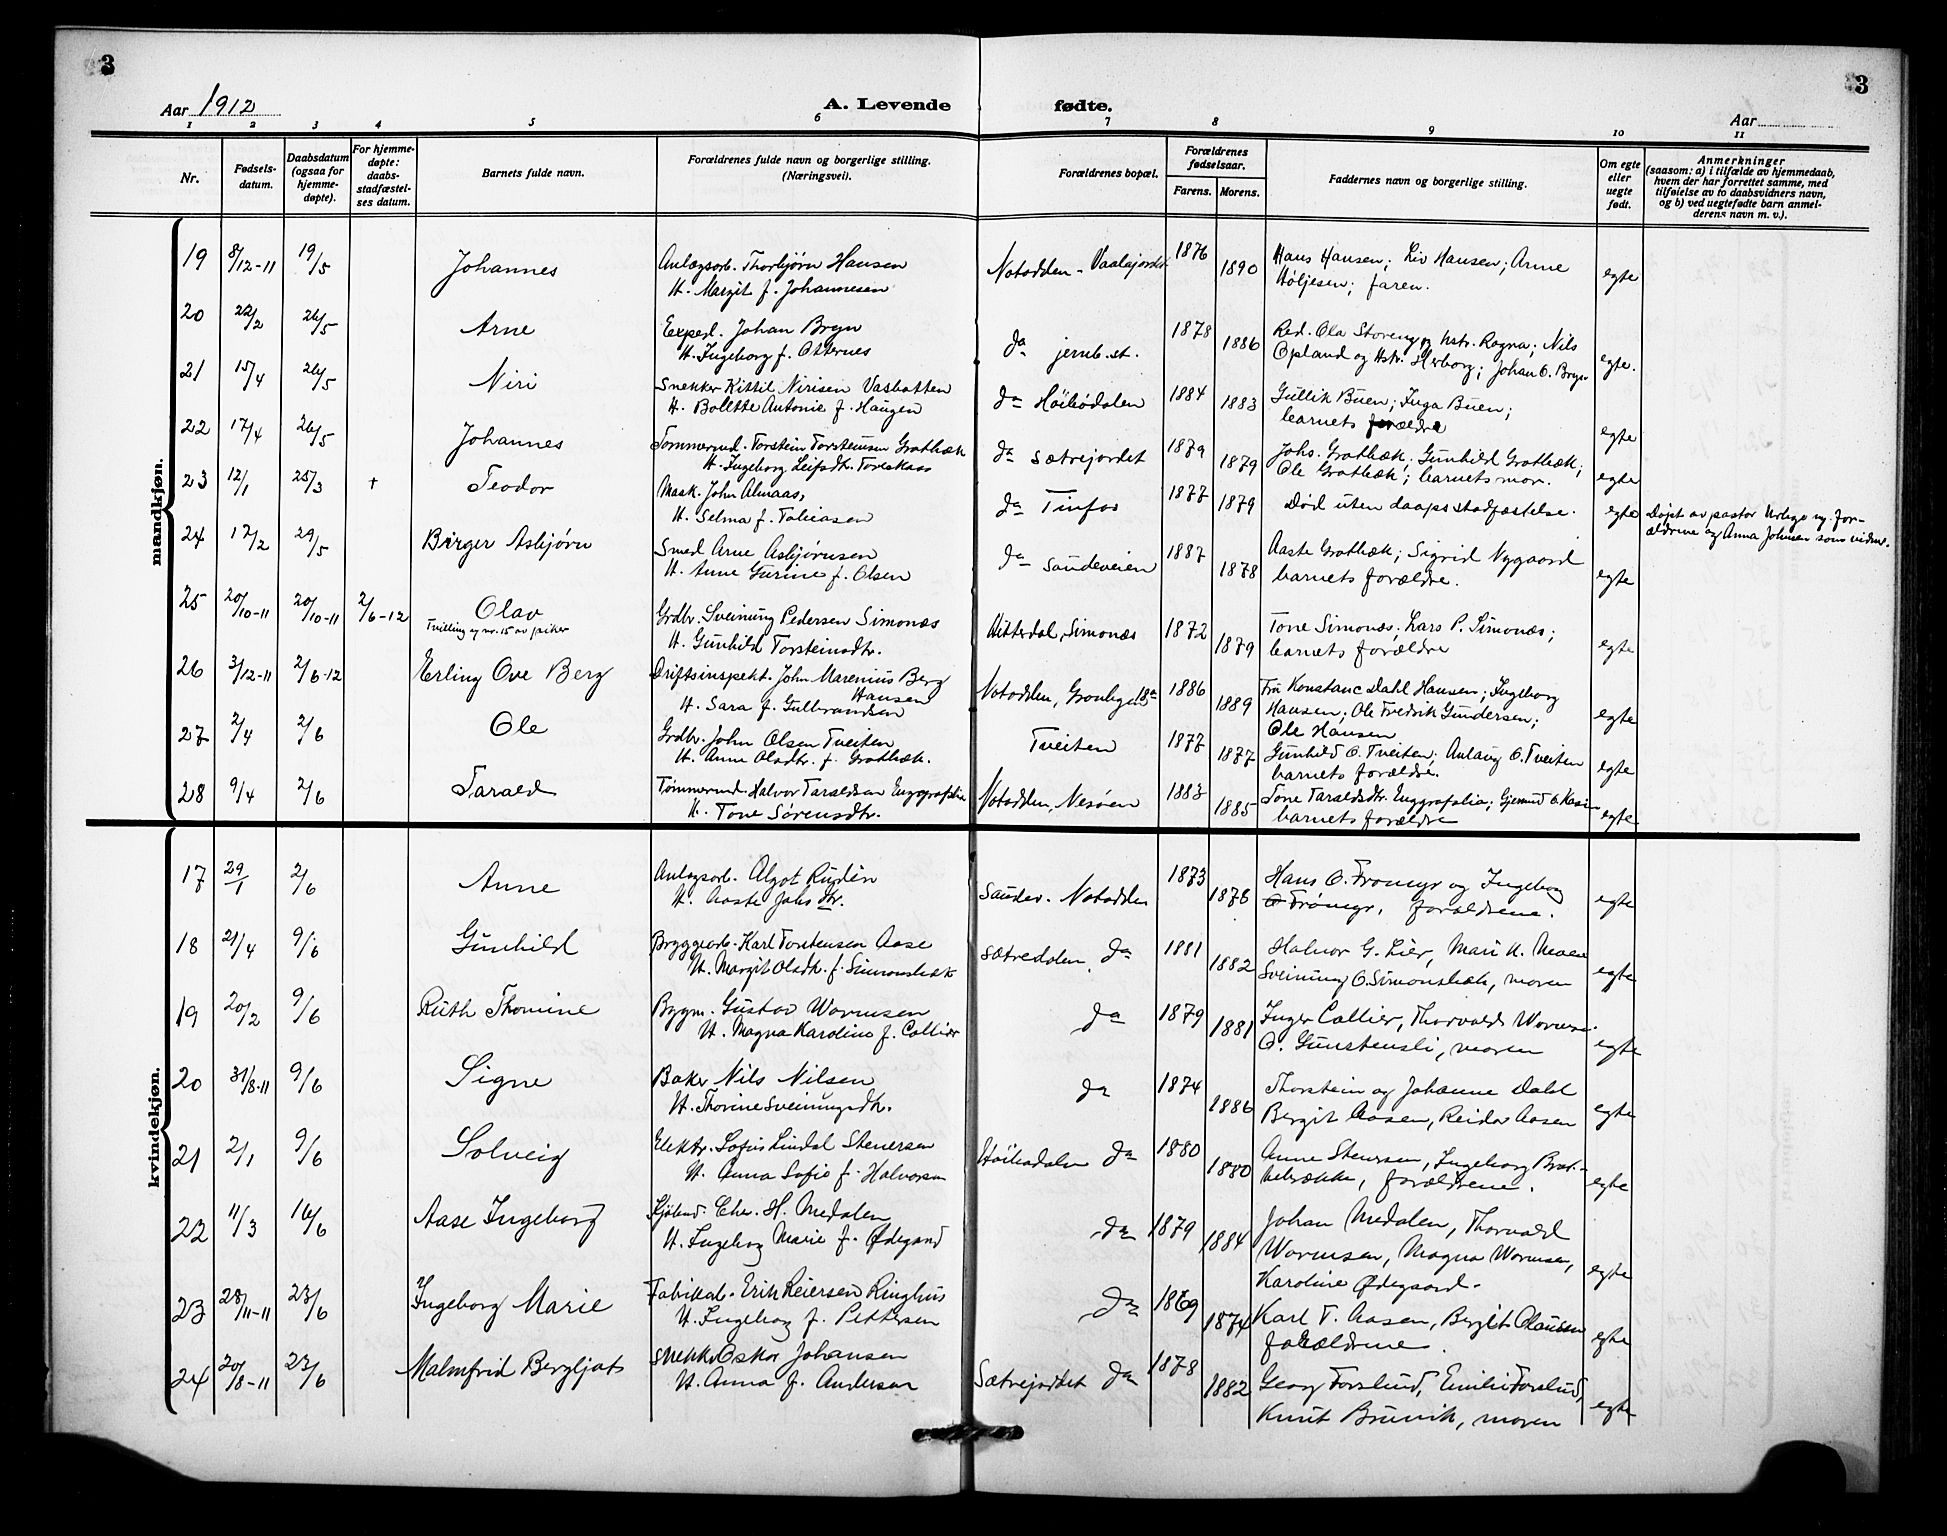 3
3
Aar 1912
A. Levende fødte.
Aar
1 2 3 4 5 6 7 8 9 10 11
Nr.
Fødsels-
datum.
Daabsdatum
(ogsaa for
hjemme-
døpte).
For hjemme-
døpte:
daabs-
stadfæstel-
ses datum.
Barnets fulde navn.
Forældrenes fulde navn og borgerlige stilling.
(Næringsvei).
Forældrenes bopæl.
Forældrenes
fødselsaar.
Farens. Morens.
Faddernes navn og borgerlige stilling.
Om egte
eller
uegte
født.
Anmerkninger
(saasom: a) i tilfælde av hjemmedaab,
hvem der har forrettet samme, med
tilføielse av to daabsvidners navn,
og b) ved uegtefødte barn anmel-
derens navn m. v.).
mandkjøn.
19 8/12-11 19/5 Johannes Anlægsarb. Thorbjørn Hansen Notodden - Vaalajordet 1876 Hans Hansen; Liv Hansen; Arne
H. Margit f. Johannesen 1890 Høljesen; faren. egte
20 22/2 26/5 Arne Exped. Johan Bryn 1878 Red. Ola Storeng og hstr. Ragna; Nils
H. Ingeborg f. Otternes da jernb. st. 1886 Opland og Hstr. Herborg; Johan O. Bryn egte.
21 15/4 26/5 Niri Snekker Kittil Nirisen Vasbotten da Høibødalen 1884 Gullik Buen; Inga Buen;
H. Bolette Antonie f. Haugen 1883 barnets forældre egte
22 17/4 26/5 Johannes Tømmermd. Torstein Torsteinsen Grotbæk da Sætrejordet 1879 Johs. Grotbæk; Gunhild Grotbæk;
H. Ingeborg Leifsdtr. Toreskaas 1879 Ole Grotbæk; barnets mor. egte
23 12/1 25/3 + Teodor Mask. John Almaas, da Tinfos 1877 Død uten daapsstadfæstelse. egte Døpt av pastor
H. Selma f. Tobiasen 1879 ældrene og Anna Johnsen som vidner.
24 17/2 29/5 Birger Asbjørn Smed Arne Asbjørnsen da Sandeveien 1887 Aaste Grotbæk; Sigrid Nygaard
H. Anne Gurine f. Olsen 1878 barnets forældre. egte
25 20/10-11 20/10-11 2/6-12 Olav Grdbr. Sveinung Pedersen Simonæs Hitterdal, Simonæs 1872 Tone Simonæs; Lars P. Simonæs;
Tvilling og nr. 15 av piker H. Gunhild Torsteinsdtr. 1879 barnets forældre egte
26 3/12-11 2/6-12 Erling Ove Berg Driftsinspekt. John Marenius Berg Notodden, 18a 1886 Fru Konstanc Dahl Hansen; Ingeborg
Hansen
H. Sara f. Gulbrandsen 1889 Hansen; Ole Fredrik Gundersen; egte
Ole Hansen
27 2/4 2/6 Ole Grdbr. John Olsen Tveiten Tveiten 1877 Gunhild O. Tveiten; Aulaug O. Tveiten
H. Anne Olsdtr. f. Grotbæk. 1877 barnets forældre. egte
28 9/4 2/6 Tarald Tømmermd. Halvor Taraldsen Enggrafslia Notodden, Nesøen 1883 Tone Taraldsdtr. Enggrafslia; Gjermund O. Kasin
H. Tone Sørensdtr. 1885 barnets forældre egte
kvindekjøn.
17 29/1 2/6 Anne Anlægsarb. Algot Rudén Sandev. Notodden 1873 Hans O. Tromyr og Ingeborg
H. Aaste Johsdtr. 1875 O Trømyr, forældrene. egte
18 21/4 9/6 Gunhild Bryggearb. Karl Torstensen Aase Sætredalen, da 1881 Halvor G. Lier, Mari H. Moen
H. Margit Olsdtr. f. Simonsbæk 1882 Sveinung O. Simonsbæk, moren egte
19 20/2 9/6 Ruth Thomine Bygm. Gustav Wormsen da 1879 Inger Collier, Thorvald Wormsen.
H. Magna Karoline f. Collier 1881 O. Gunstensli, moren egte
20 31/8-11 9/6 Signe Baker Nils Nilsen da 1874 Thorstein og Johanne Dahl
H. Thorine Sveinungsdtr. 1886 Bergit Aasen, Reidar Aasen egte
21 2/1 9/6 Solveig Elektr. Sofus Lindal Stenersen Høibødalen da 1880 Anne Stenersen, Ingeborg
H. Anna Sofie f. Halvorsen 1880 bebrække, forældrene. egte
22 11/3 16/6 Aase Ingeborg Kjøbmd. Chr. H. Medalen da 1879 Johan Medalen, Thorvald
H. Ingeborg Marie f. Ødegaard 1884 Wormsen, Magna Wormsen,
Karoline Ødegaard. egte
23 28/11-11 23/6 Ingeborg Marie Fabrikarb. Erik Reiersen Ringhus da 1869 Karl T. Aasen, Bergit Olausen
H. Ingeborg f. Pettersen 1874 forældrene. egte
24 20/8-11 23/6 Malmfrid Bergljot Snekk. Oskar Johansen Sætrejordet da 1878 Georg Forslund, Emilie Forslund,
H. Anna f. Andersen 1882 Knut Brunvik, moren egte